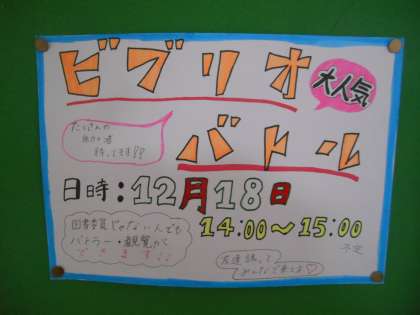 ビブリオ
大人気
バトル
たくさんの
参加者
待ってます!!
日時:12月18日
14:00~15:00
予定
図書委員じゃない人でも
バトラー・観覧が
できます!!
友達誘って
みんなで来てね♡